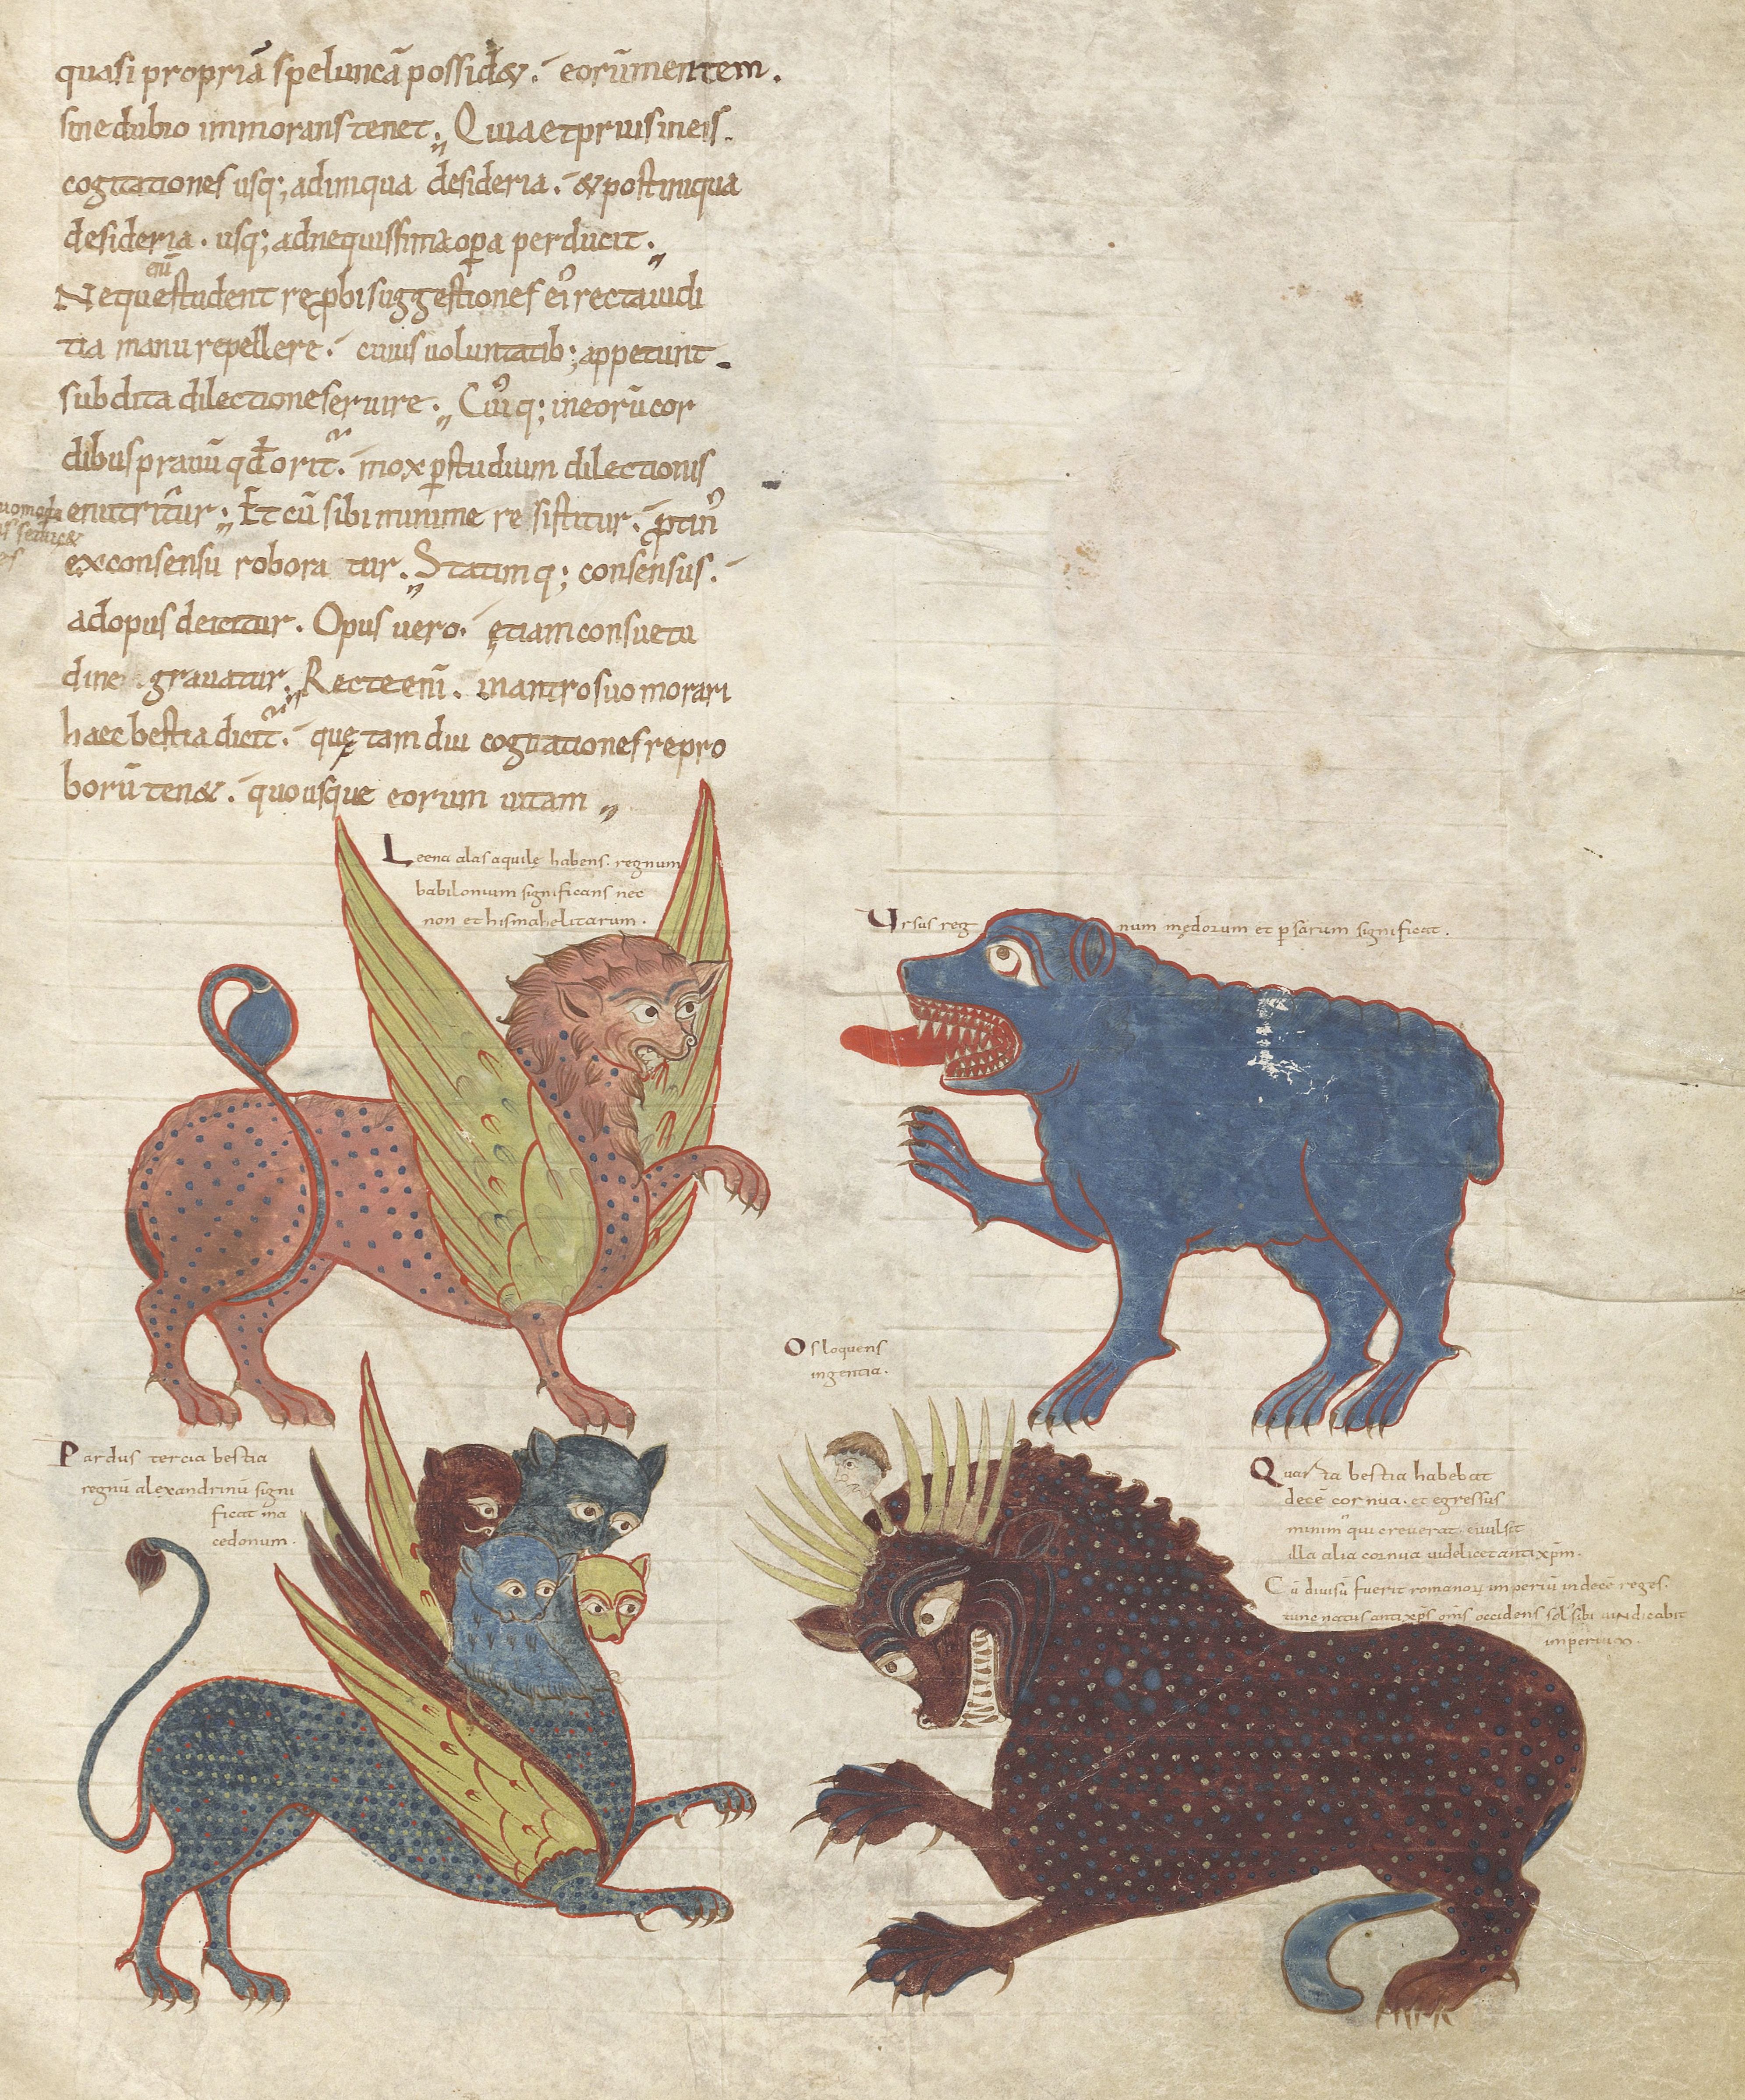 quasi propriā speluncā possid&. eorū mentem.
sine dubio inmorans tenet; Quia et prius in eis.
cogitationes usq; ad iniqua desideria. & post iniqua
desideria. usq; ad nequissima opa perducit.
enī
Neque student reprobi suggestiones ei recta iudi
tia manu repellere. cuius voluntatib; appetunt
subdita dilectione servire. Cūq; in eorū cor
dibus pravū qd orit. mox p studium dilectionis
enutritur; Et cū sibi minime resistitur. ptin
ex consensu roboratur. Statimq; consensus.
ad opus deicitur. Opus vero. ętiam consuetu
dine gravatur. Recte enī. in antro suo morari
haec bestia dicit. quę tam diu cogitationes repro
borū ten&. quousque eorum vitam
Leena alas aquilę habens. regnum
babilonium significans nec
non et hismahelitarum.
Ursus regnum mędorum et psarum significat.
Os loquens
ingentia.
Pardus tercia bestia
regnū alexandrinū signi
ficat ma
cedonum.
Quarta bestia habebat
decē cornua. et egressus
minim qui creverat. evulsit
illa alia cornua videlicet antixpm.
Cū divisū fuerit romanorꝝ imperiū in decē reges.
tunc natus antixps oms occidens sol sibi vindicabit
imperium.